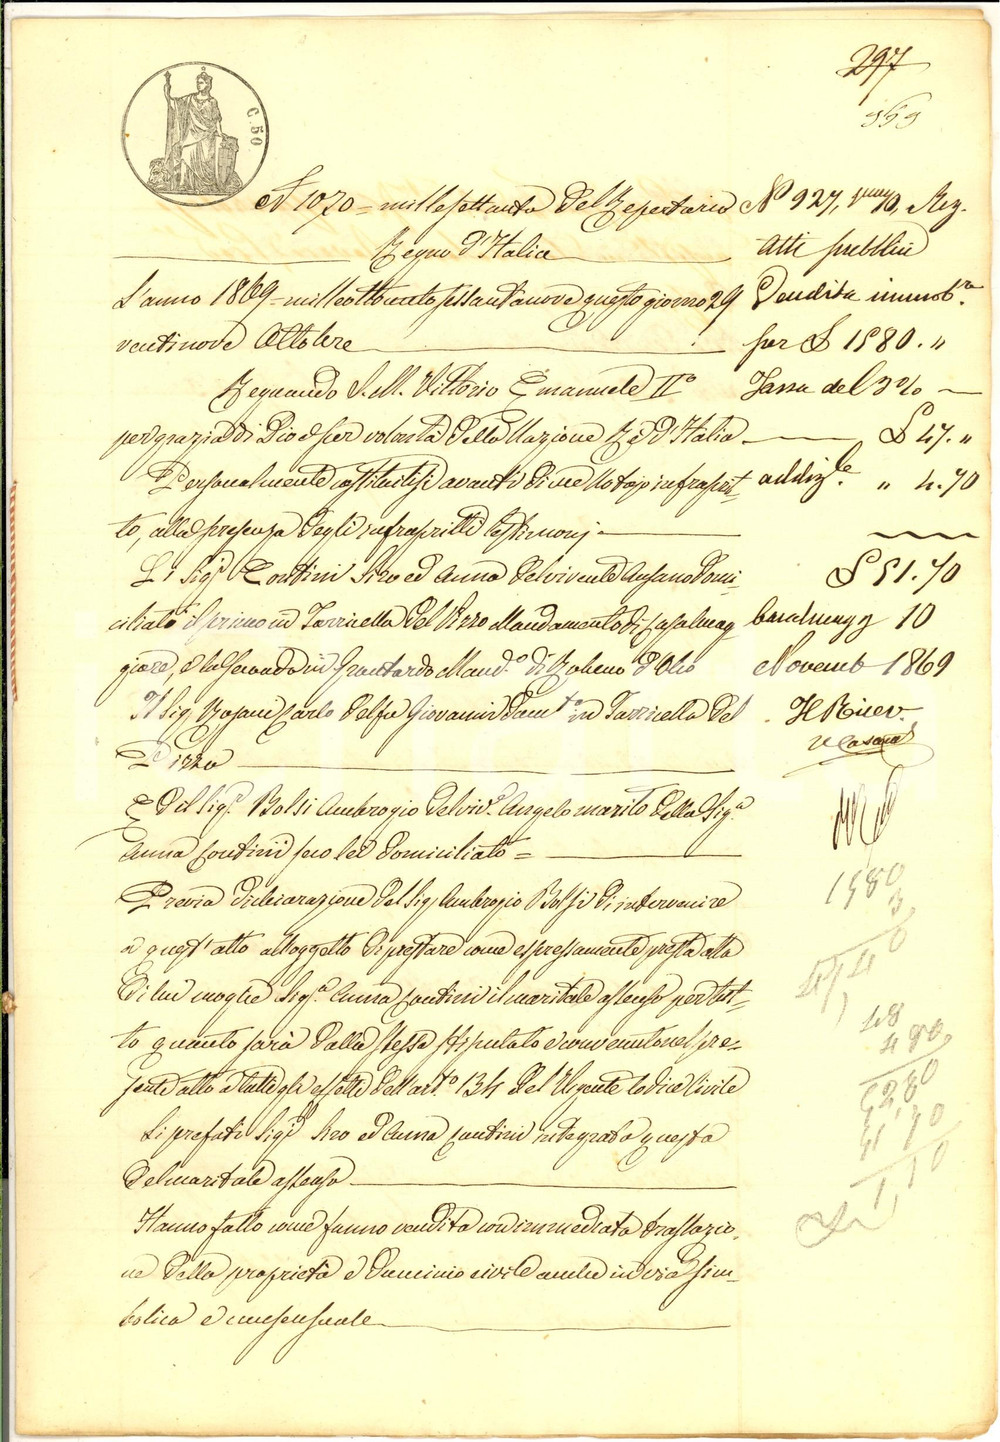 297
959
C. 50
N 1070 = millesettanta del Repertorio
Regno d'Italia
L'anno 1869 = milleottocento sessantanove questo giorno 29
ventinove Ottobre
Regnando S. M. Vittorio Emanuele II°
per grazia di Dio e per volontà della Nazione Re d'Italia
Personalmente costituitisi avanti di me Notajo infrascrit-
to, alla presenza degli infrascritti testimonj
Li Sigi Contini Siro ed Anna del vivente Ausano domi-
ciliato il primo in Torricella del Pizzo Mandamento di Casalmag
giore, e la seconda in Grontardo Mand.° di Robecco d'Olio
Il Sig Rosani Carlo del fu Giovanni dom.to in Torricella del
Pizzo
E dil Sig.r Bolsi Ambrogio del viv.e Angelo marito della Sig.a
Anna Contini seco lei domiciliato =
Previa dichiarazione del Sig Ambrogio Bolsi di intervenire
a quest'atto all'oggetto di prestare come espressamente presta alla
di lui moglie Sig.a Anna Contini il maritale assenso per tut-
to quanto sarà dalla stessa stipulato e convenuto nel pre-
sente atto e tutti gli effetti dell'art.° 134 del Vigente Codice Civile
Li prefati Sigi Siro ed Anna Contini integrata questa
del maritale assenso
Hanno fatto come fanno vendita con immediata traslazio-
ne della proprietà e dominio civile anche in via sim-
bolica e consensuale
N° 927, 70, Reg.
Atti pubblici
Vendita immob.re
per £ 1580. "
Tassa del 3 %
£ 47. "
addiz.le " 4.70
£ 51.70
10
Novemb 1869
Il Ricev.
1580
3
4740
48